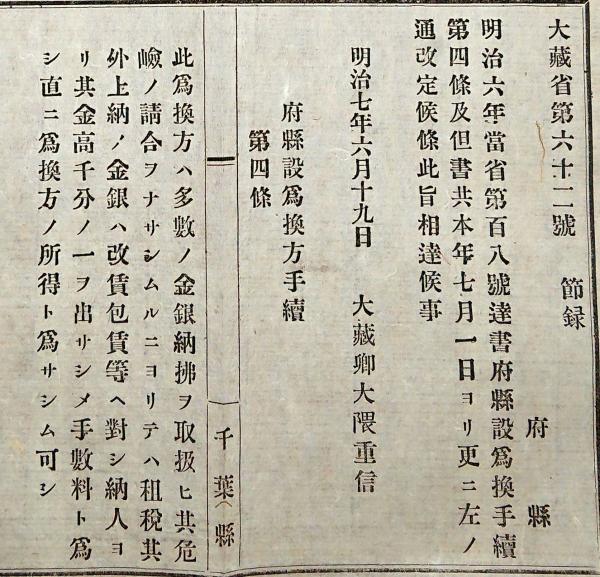 大藏省第六十二號　節録
府縣
明治六年當省第百八號達書府縣設爲換手續
第四條及但書共本年七月一日ヨリ更ニ左ノ
通改定候條此旨相達候事
明治七年六月十九日　大藏卿大隈重信
府縣設爲換方手續
第四條
千葉縣
此爲換方ハ多數ノ金銀納拂ヲ取扱ヒ其危
嶮ノ請合ヲナサシムルニヨリテハ租税其
外上納ノ金銀ハ改賃包賃等ヘ對シ納人ヨ
リ其金高千分ノ一ヲ出サシメ手數料ト爲
シ直ニ爲換方ノ所得ト爲サシム可シ